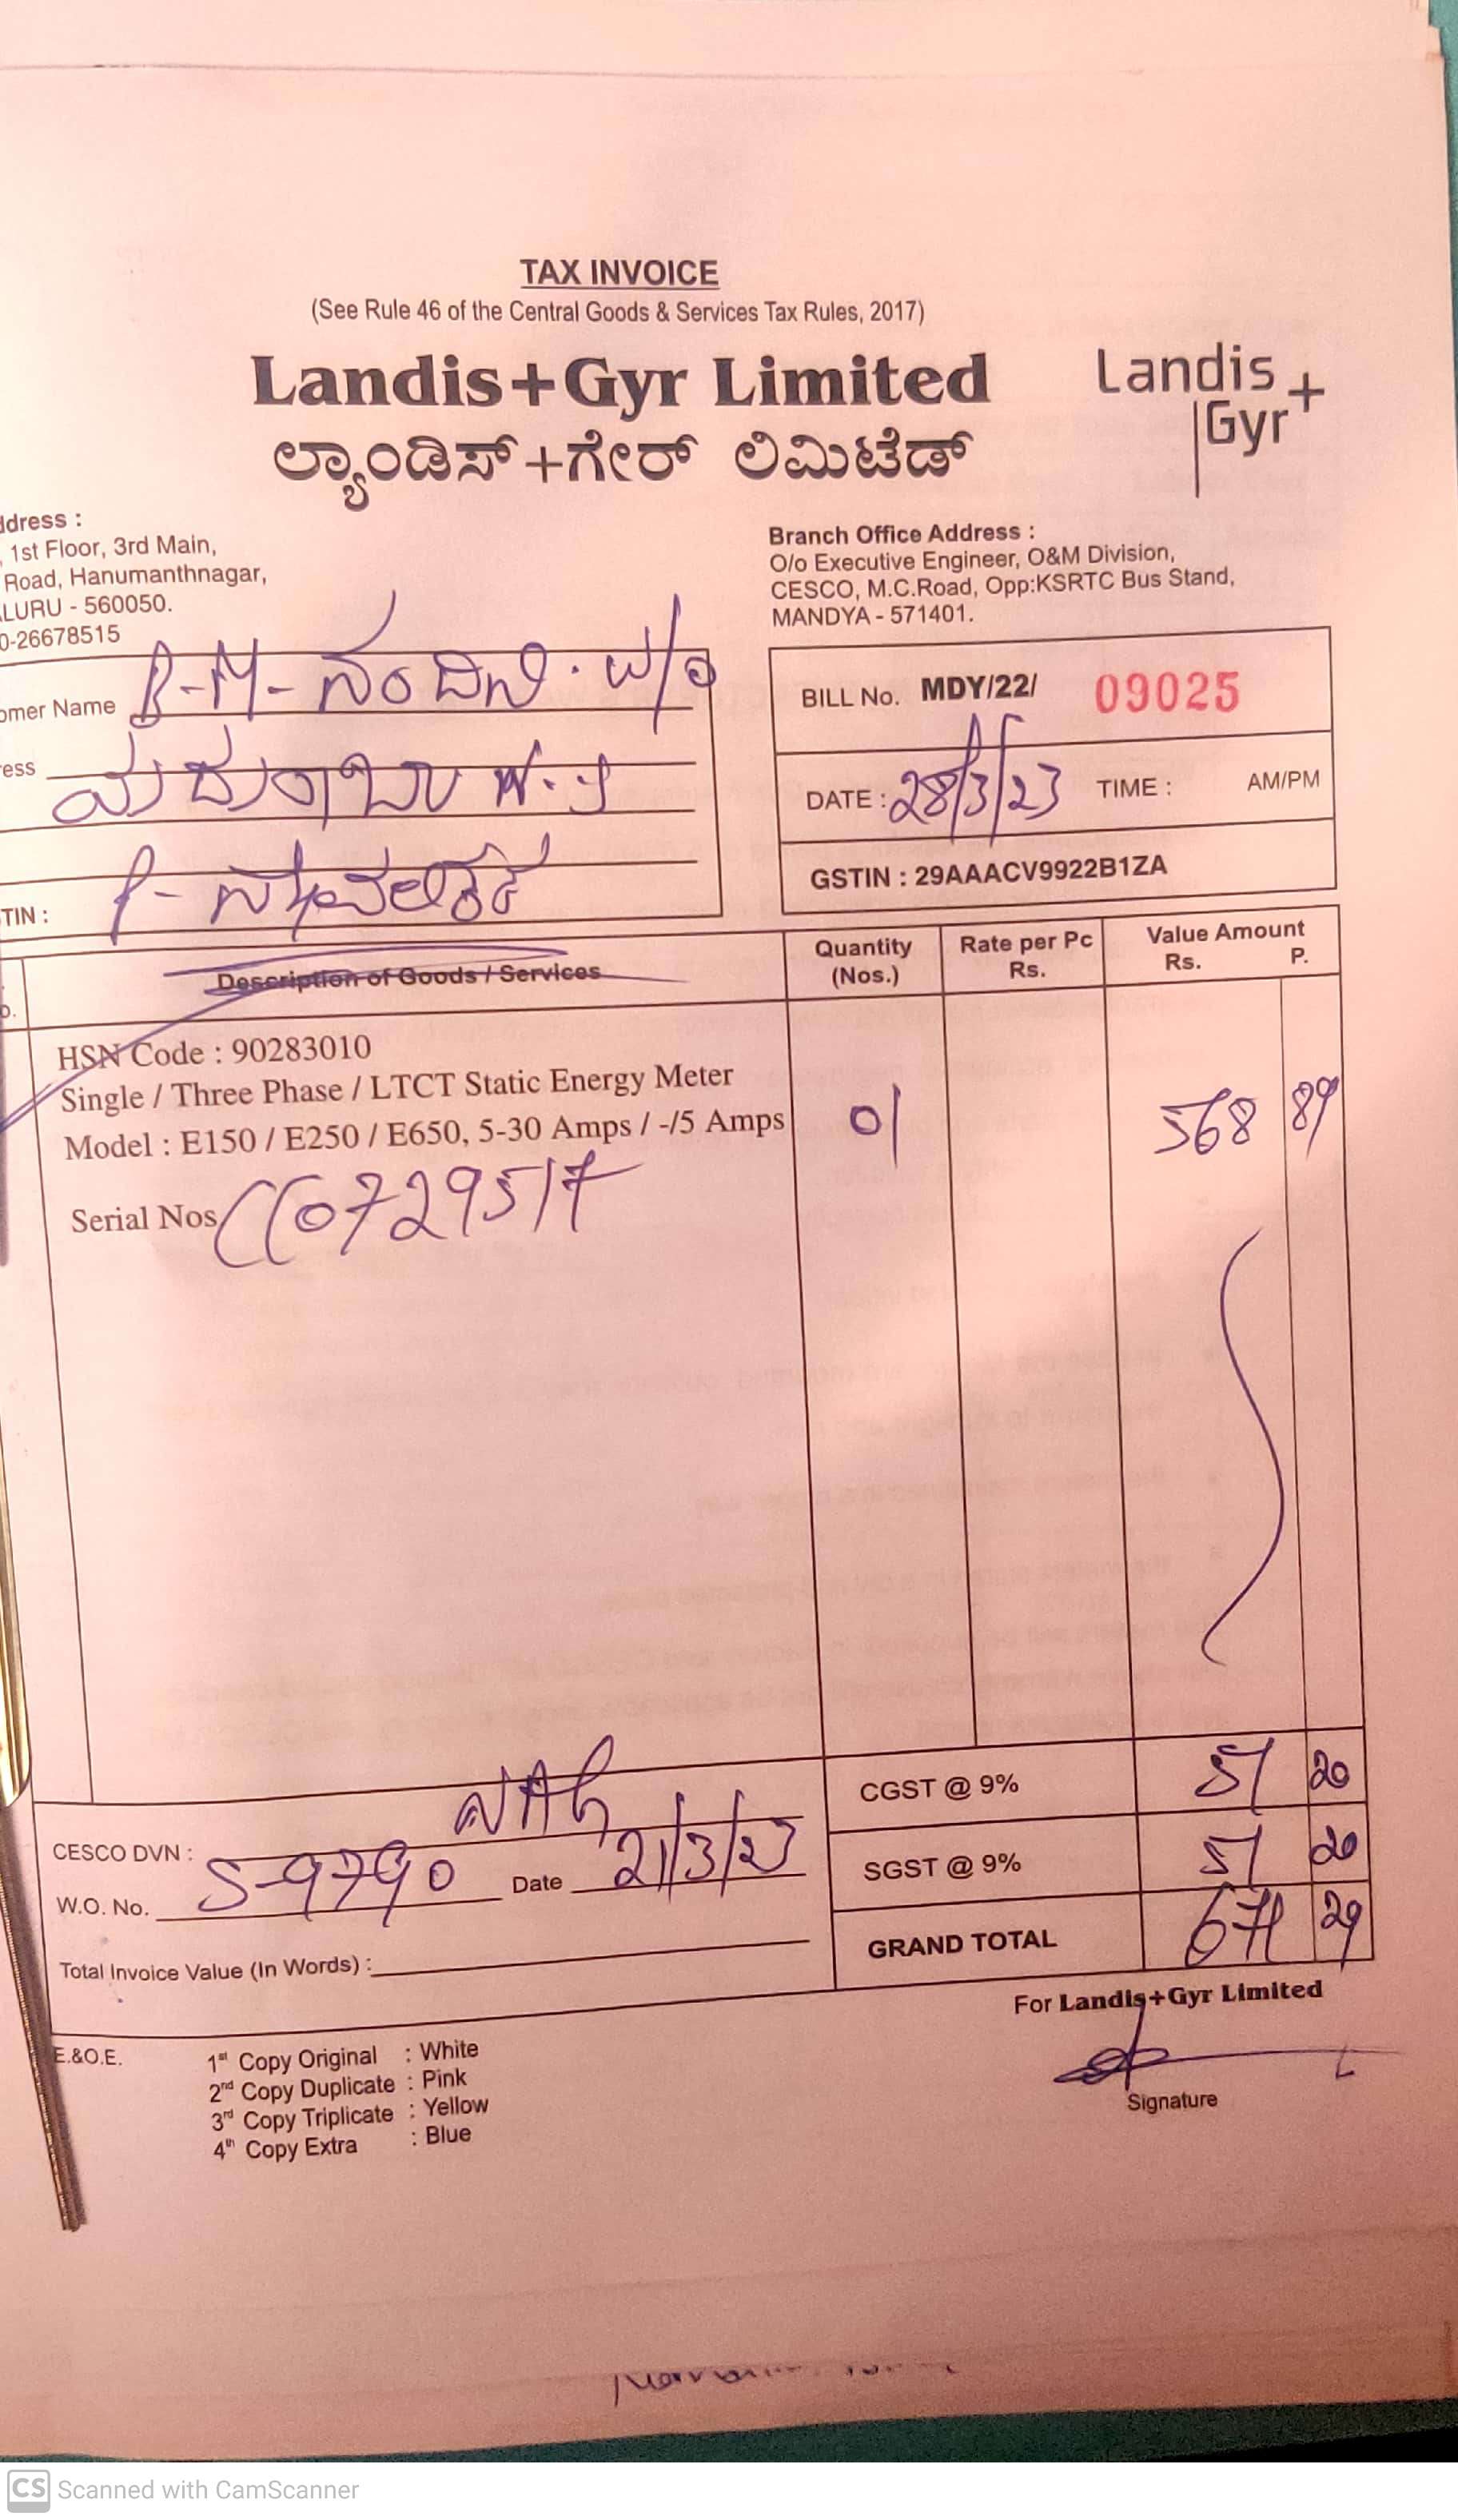 TAX INVOICE
(See Rule 46 of the Central Goods & Services Tax Rules, 2017)
Landis+Gyr Limited
ಲ್ಯಾಂಡಿಸ್+ಗೇರ್ ಲಿಮಿಟೆಡ್
Landis+
Gyr
ddress :
, 1st Floor, 3rd Main,
Road, Hanumanthnagar,
LURU - 560050.
0-26678515
Branch Office Address :
O/o Executive Engineer, O&M Division,
CESCO, M.C.Road, Opp:KSRTC Bus Stand,
MANDYA - 571401.
omer Name B-M- ನಂದಿನಿ. w/o
ess
TIN :
BILL No. MDY/22/ 09025
DATE : 28/3/23 TIME : AM/PM
GSTIN : 29AAACV9922B1ZA
o. Description of Goods / Services Quantity (Nos.) Rate per Pc Rs. Value Amount Rs. P.
HSN Code : 90283010
Single / Three Phase / LTCT Static Energy Meter
Model : E150 / E250 / E650, 5-30 Amps / -/5 Amps 01 568 89
Serial Nos CC0729517
CGST @ 9% 51 20
SGST @ 9% 51 20
GRAND TOTAL 671 29
CESCO DVN :
W.O. No. S-9790 Date 21/3/23
Total Invoice Value (In Words) :
For Landis+Gyr Limited
Signature
E.&O.E.
1st Copy Original : White
2nd Copy Duplicate : Pink
3rd Copy Triplicate : Yellow
4th Copy Extra : Blue
CS Scanned with CamScanner